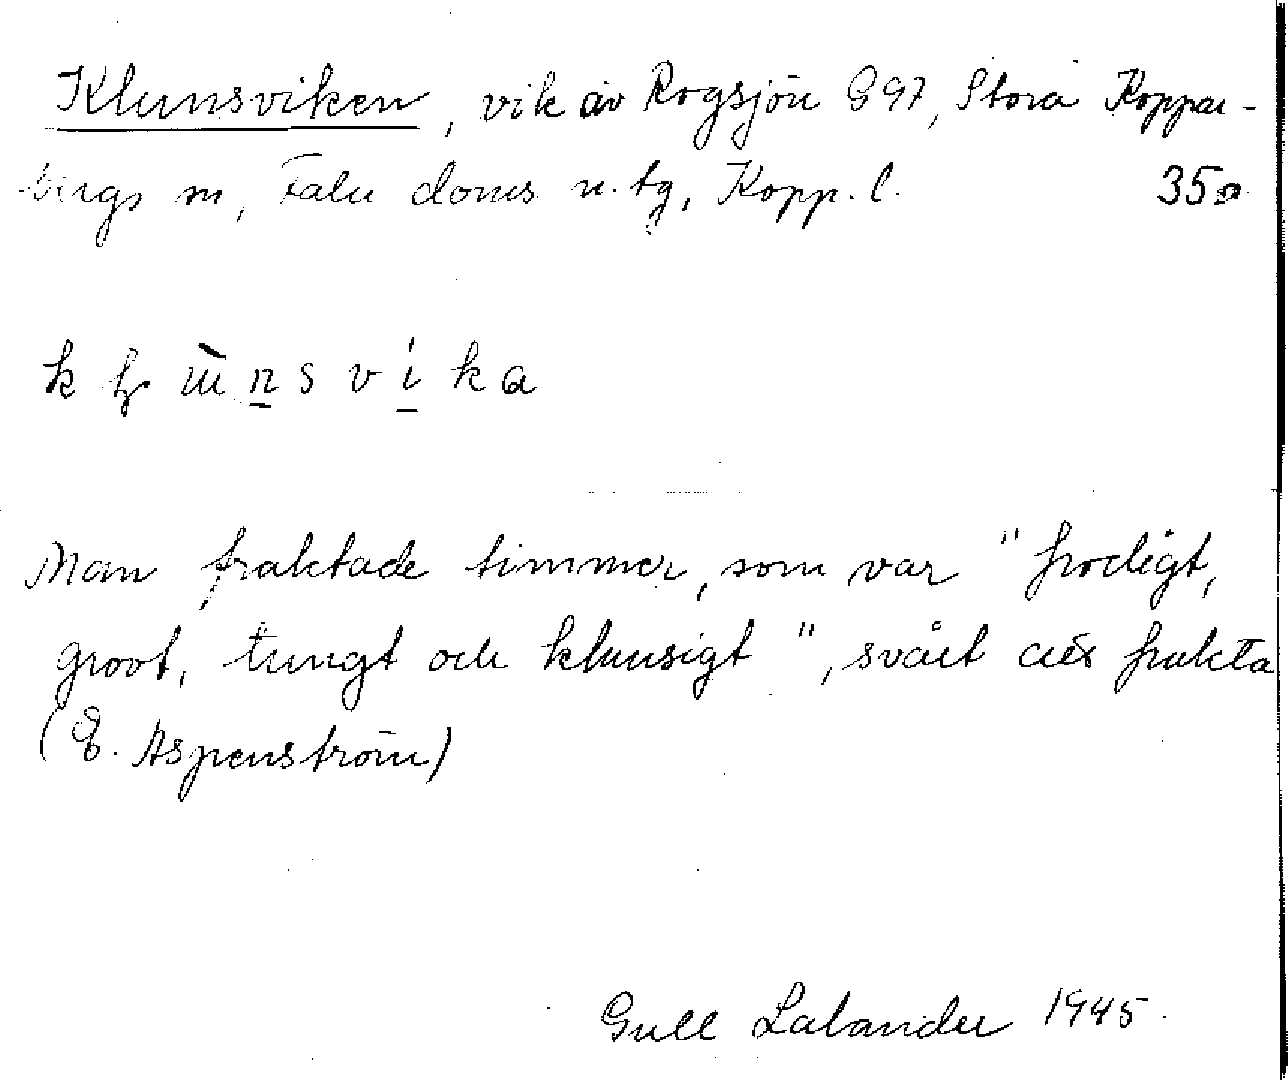 Klunsviken, vik av Rogsjön G97, Stora Koppar-
bergs sn, Falu doms n. tg, Kopp. l. 35
Man fraktade timmer, som var "frodigt,
grovt, tungt och klunsigt", svårt att frakta
(E. Aspenström)
Gull Lalander 1945.